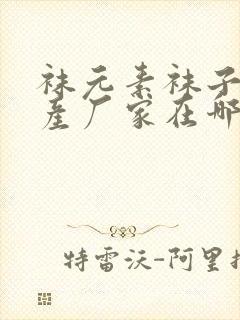 袜元素袜子
产厂家在哪
特雷沃-阿里扎